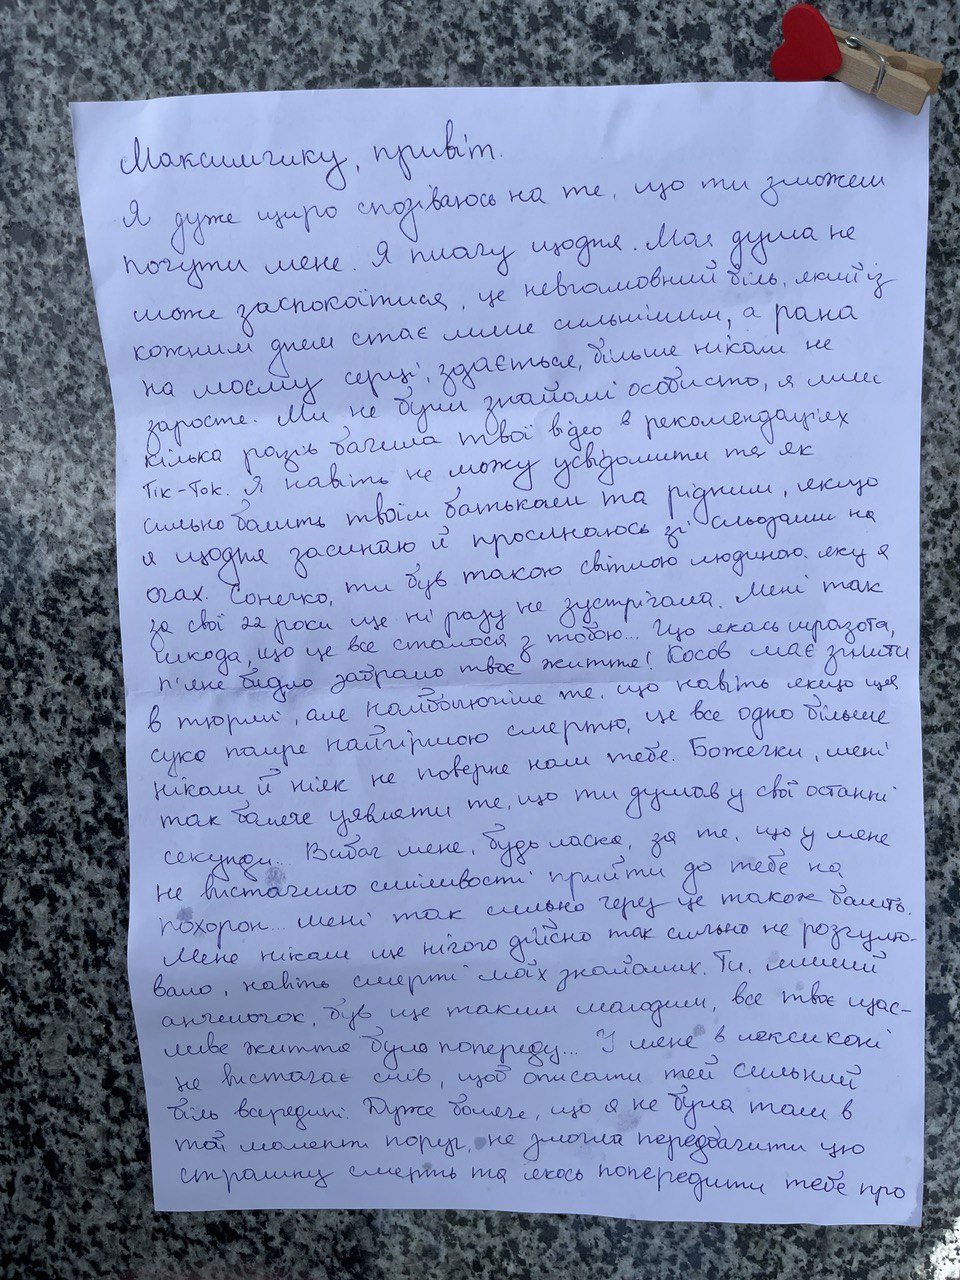 Максимчику, привіт.
Я дуже щиро сподіваюсь на те, що ти зможеш
почути мене. Я плачу щодня. Моя душа не
може заспокоїтися, це невгамовний біль, який із
кожним днем стає лише сильнішим, а рана
на моєму серці, здається, більше ніколи не
заросте. Ми не були знайомі особисто, я лиш
кілька разів бачила твої відео в рекомендаціях
Тік-Ток. Я навіть не можу усвідомити те як
сильно болить твоїм батькам та рідним, якщо
я щодня засинаю й просинаюсь зі сльозами на
очах. Сонечко, ти був такою світлою людиною яку я
за свої 22 роки ще ні разу не зустрічала. Мені так
шкода, що це все сталося з тобою... Що якась мразота,
п'яне бидло забрало твоє життя! Косов має згнити
в тюрмі, але найболючіше те, що навіть якщо ця
сука помре найгіршою смертю, це все одно більше
ніколи й ніяк не поверне нам тебе. Божечки, мені
так боляче уявляти те, що ти думав у свої останні
секунди... Вибач мене, будь ласка, за те, що у мене
не вистачило сміливості прийти до тебе на
похорон... мені так сильно через це також болить.
Мене ніколи ще нічого дійсно так сильно не розчулю-
вало, навіть смерті моїх знайомих. Ти, милий
анчелочок, був ще таким молодим, все твоє щас-
ливе життя було попереду... У мене в лексиконі
не вистачає слів, щоб описати той сильний
біль всередині. Дуже боляче, що я не була там в
той момент поруч, не змогла передбачити цю
страшну смерть та якось попередити тебе про